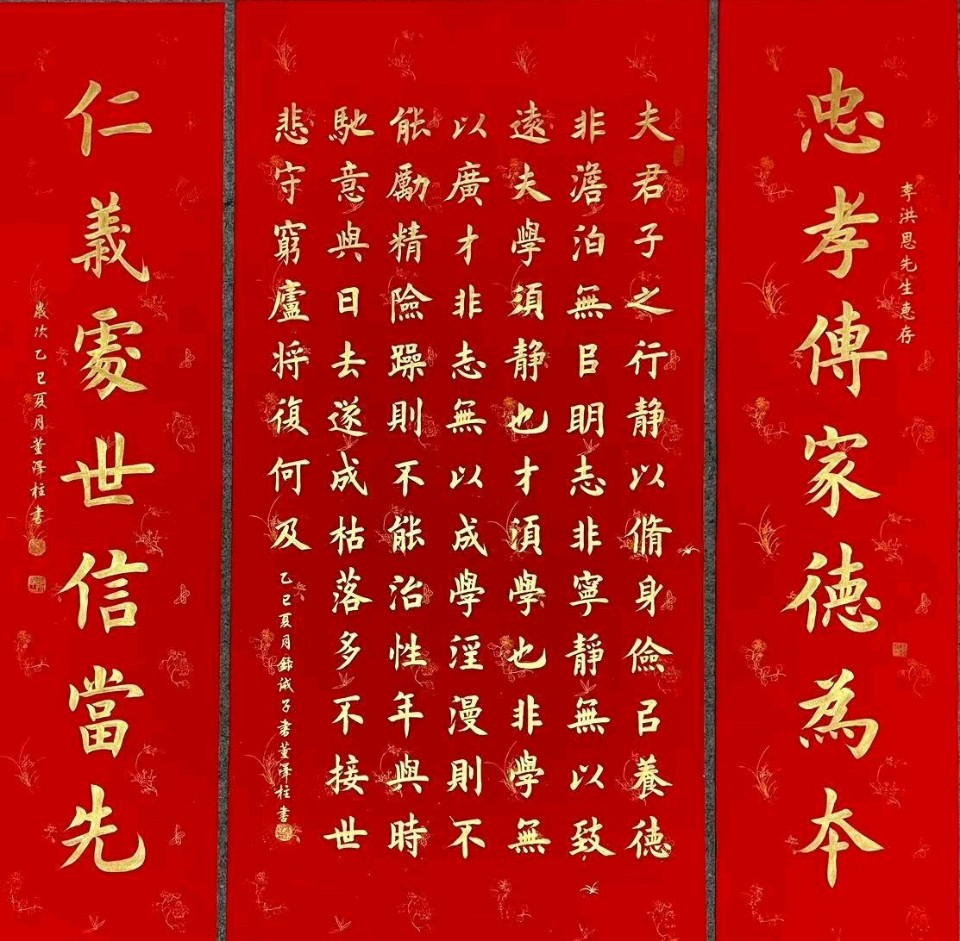 李洪恩先生惠存
忠孝傳家德為本
夫君子之行静以脩身儉㠯養德
非澹泊無㠯明志非寧靜無以致
遠夫學須静也才須學也非學無
以廣才非志無以成學淫漫則不
能勵精險躁則不能治性年與時
馳意與日去遂成枯落多不接世
悲守窮廬将復何及
乙巳夏月錄诫子書董澤柱書
仁義處世信當先
歲次乙巳夏月董澤柱書